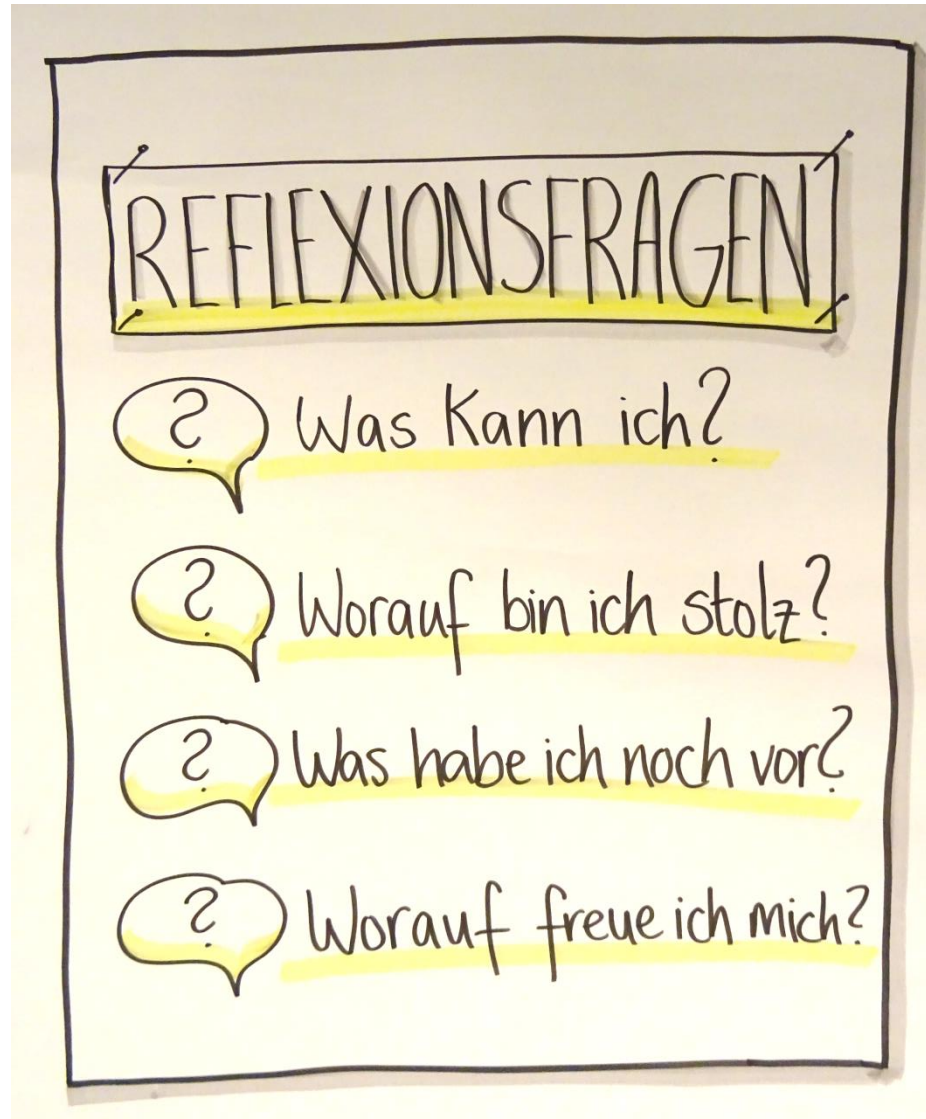 REFLEXIONSFRAGEN
? Was kann ich?
? Worauf bin ich stolz?
? Was habe ich noch vor?
? Worauf freue ich mich?